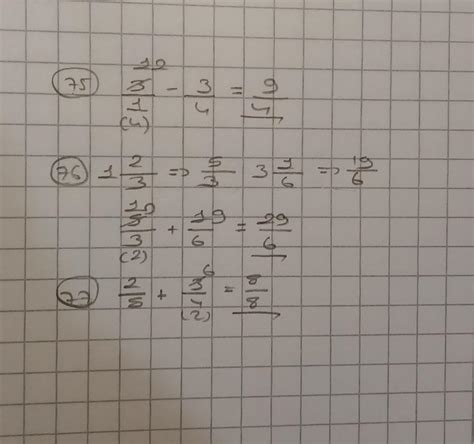 75 12 3/1 (4) - 3/4 = 9/4
76 1 2/3 => 5/3 3 1/6 => 19/6
10 5/3 (2) + 19/6 = 29/6
77 2/8 + 6 3/4 (2) = 8/8